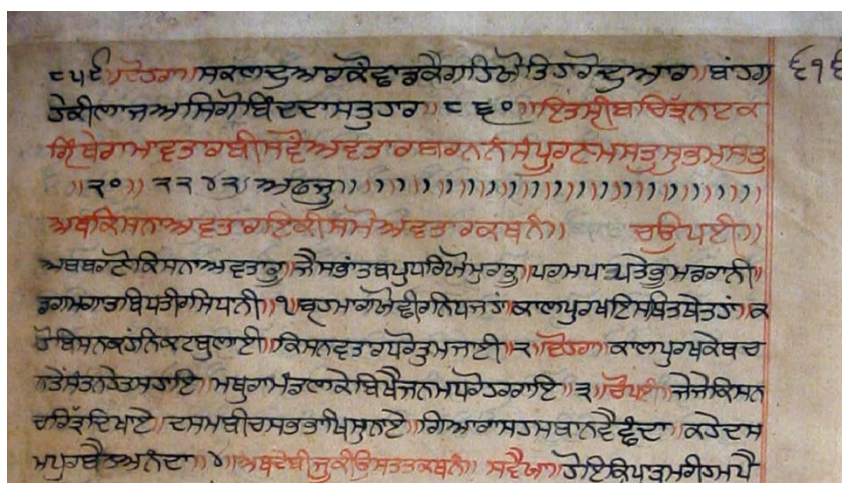 ੮੫੬।।ਦੋਹਰਾ।।ਸਕਲਦੁਆਰਕੌਛਾਡਕੈਗਹਿਓਤਿਹਾਰੋਦੁਆਰ।।ਬਾਂਹਗ
ਹੇਕੀਲਾਜਅਸਿਗੋਬਿੰਦਦਾਸਤੁਹਾਰ।।੮੬੦।।ਇਤਸ੍ਰੀਬਚਿਤ੍ਰਨਾਟਕ
ਗ੍ਰਿੰਥੇਰਾਮਾਵਤਾਰਬੀਸਵੈਅਵਤਾਰਬਰਨਨੰਸੰਪੂਰਣਮਸਤੁਸੁਭਮਸਤੁ
।।੨੦।।
ਅਥਕਿਸਨਾਅਵਤਾਰਇਕੀਸਮੋਅਵਤਾਰਕਥਨੰ।। ਚਉਪਈ।।
ਅਬਬਰਣੋਕਿਸਨਾਅਵਤਾਰੂ।ਜੈਸਭਾਂਤਬਪੁਧਰਿਓਮੁਰਾਰੂ।ਪਰਮਪਾਪਤੇਭੂਮਡਰਾਨੀ।
ਡਗਮਗਾਤਬਿਧਤੀਰਸਿਧਾਨੀ।।੧।ਬ੍ਰਹਮਾਗਯੋਛੀਰਨਿਧਜਹਾਂ।ਕਾਲਪੁਰਖਇਸਥਿਤਥੇਤਹਾਂ।ਕ
ਹਯੋਬਿਸਨਕਹਨਿਕਟਬੁਲਾਈ।।ਕਿਸਨਵਤਾਰਧਰੋਤੁਮਜਾਈ।।੨।।ਦੋਹਰਾ।।ਕਾਲਪੁਰਖਕੇਬਚ
ਨਤੇਸੰਤਨਹੇਤਸਹਾਇ।।ਮਥੁਰਾਮੰਡਲਕੇਬਿਖੈਜਨਮਧਰੋਹਰਰਾਇ।।੩।।ਚੌਪਈ।।ਜੇਜੇਕਿਸਨ
ਚਰਿਤ੍ਰਦਿਖਾਏ।ਦਸਮਬੀਚਸਭਭਾਖਿਸੁਨਾਏ।।ਗਿਆਰਾਸਹਸਬਾਨਵੈਛੰਦਾ।ਕਹੇਦਸ
ਮਪੁਰਬੈਠਅਨੰਦਾ।।੪।।ਅਥਦੇਬੀਜੂਕੀਉਸਤਤਕਥਨੰ।। ਸਵੈਯਾ।।ਹੋਇਕ੍ਰਿਪਾਤੁਮਰੀਹਮਪੈ